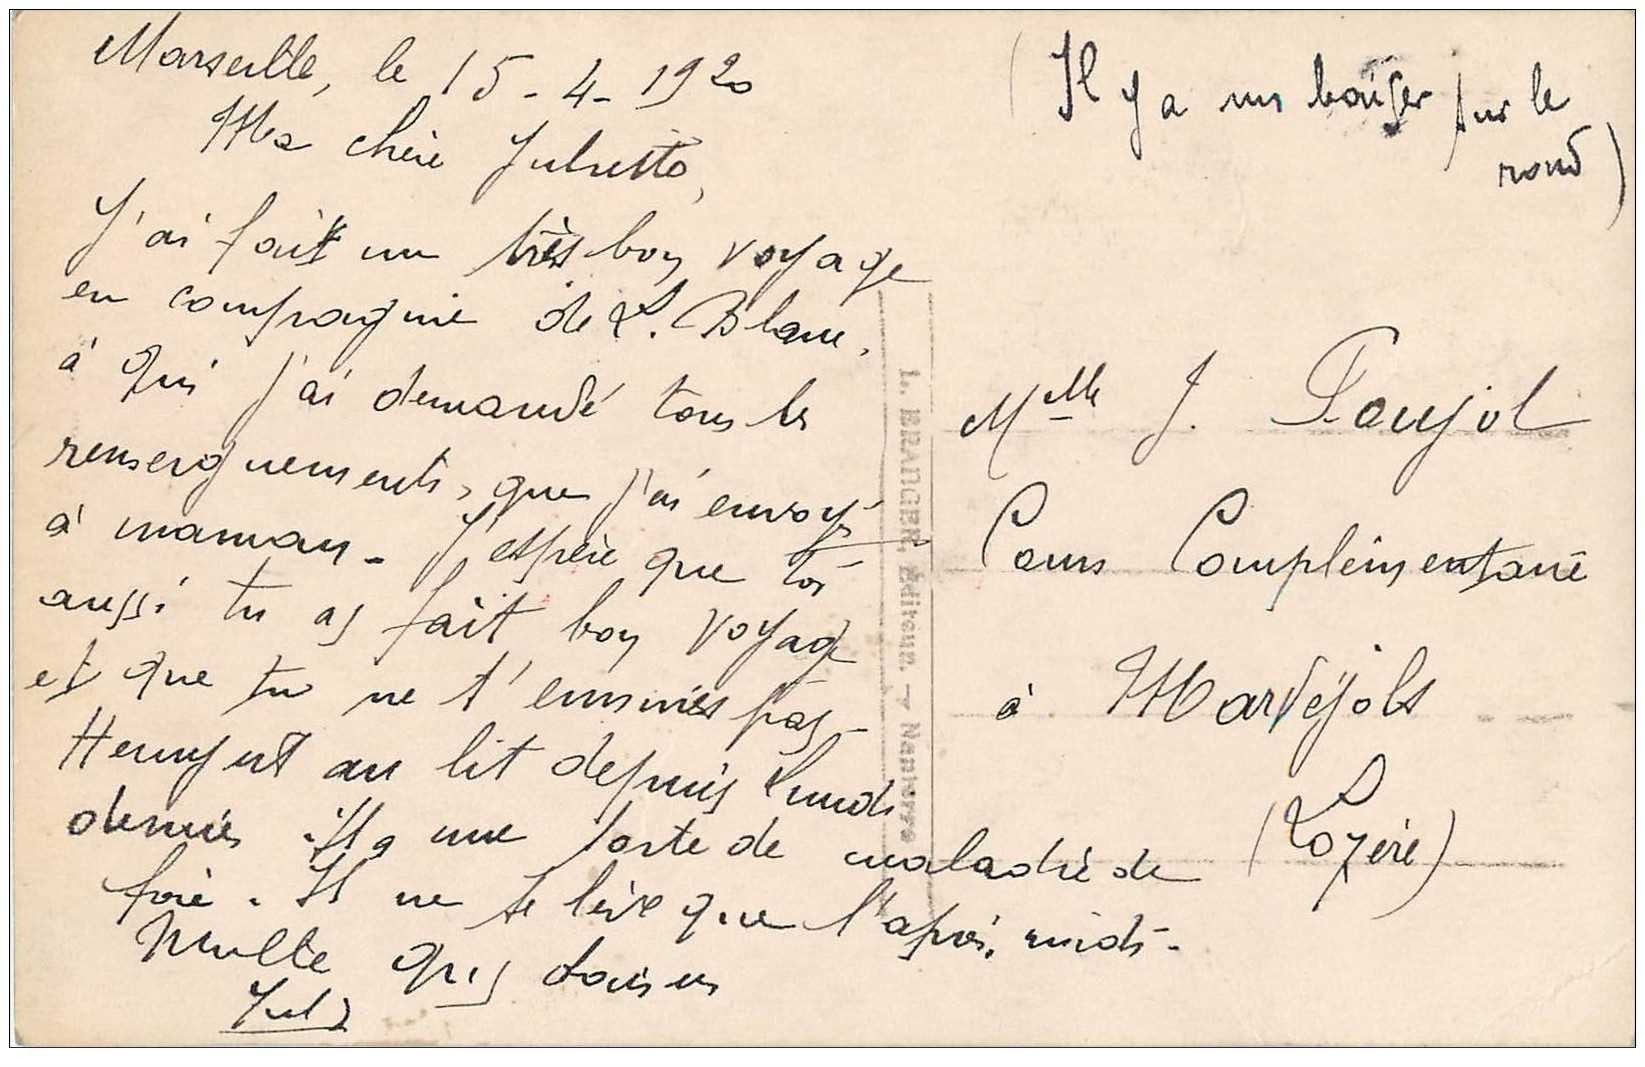 Marseille, le 15-4-1920
Ma chère Juliette,
J'ai fait un très bon voyage
en compagnie de L. Blanc,
à qui j'ai demandé tous les
renseignements, que j'ai envoyé
à maman - J'espère que toi
aussi tu as fait bon voyage
et que tu ne t'ennuies pas -
Henry est au lit depuis lundi
dernier. Il a une sorte de maladie de
foie. Il ne se lève que l'après, midi -
Mille baisers
(Il y a un baiser sur le
rond)
Mlle J. Poujol
Cours Complémentaire
à Marvéjols
(Lozère)
L. BRANGER, éditeur. — Nanterre